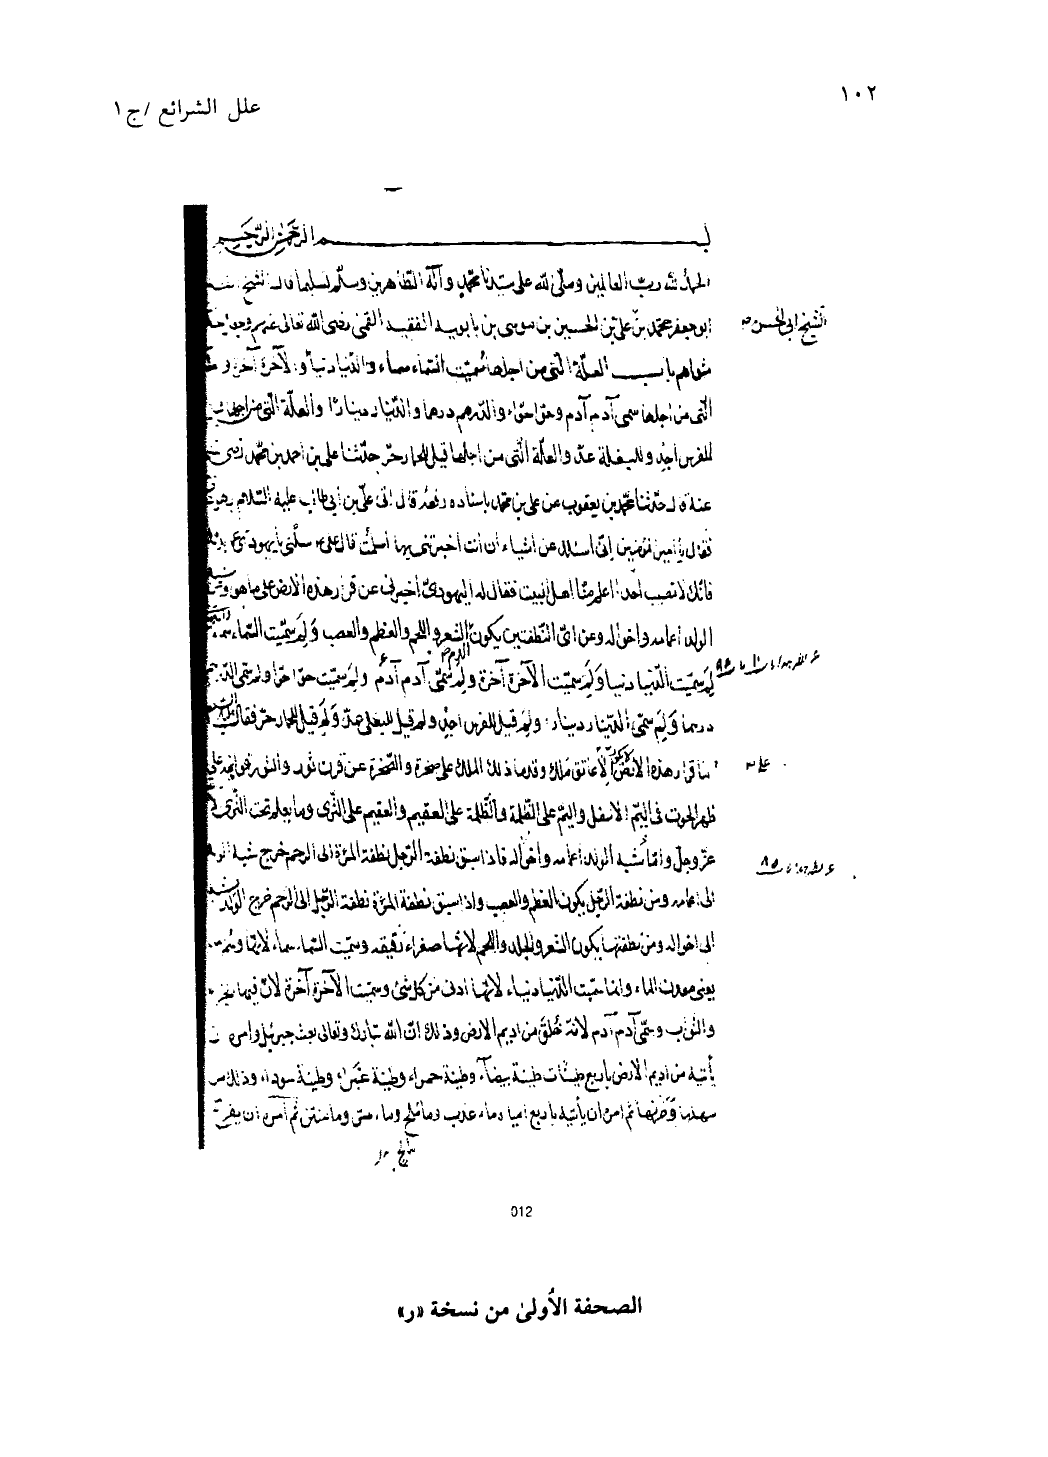 ١٠٢
علل الشرائع /ج١
بسم الرحمن الرحيم
الحمد لله رب العالمين وصلى الله على سيدنا محمد وآله الطاهرين وسلم تسليما قال الشيخ
ابو جعفر محمد بن علي بن الحسين بن موسى بن بابويه الفقيه القمي رضى الله تعالى عنهم وجعل
الشيخ ابى الحسن
مثواهم باب العلة التى من اجلها سميت السماء سماء والدنيا دنيا والآخرة آخرة و
التى من اجلها سمى آدم آدم وحوا حواء والدرهم درهما والدينار دينارا والعلة التى من اجلها قيل
للفرس اجد وللبغلة عد والعلة التى من اجلها قيل للحمار حر حدثنا على بن احمد بن محمد رضى
عنه قال حدثنا محمد بن يعقوب عن على بن محمد باسناده رفعه قال اتى على بن أبى طالب عليه السلام يهودى
فقال يا امير المؤمنين إنى اسئلك عن اشياء ان انت اخبرتنى بها اسلمت قال على سلنى يا يهودى عما بدا لك
فانك لا تصيب احدا اعلم منا اهل البيت فقال له اليهودى أخبرنى عن قرار هذه الارض على ما هو وشبه
الولد اعمامه واخواله وعن اى النطفتين يكون الشعر واللحم والعظم والعصب ولم سميت السماء سماء
لم سميت الدنيا دنيا ولم سميت الآخرة آخرة ولم سمى آدم آدم ولم سميت حوا حوا ولم سمى الدرهم
درهما ولم سمى الدينار دينارا ولم قيل للفرس اجد ولم قيل للبغل عد ولم قيل للحمار حر فقال
اما قرار هذه الارض لا يكون الا على عاتق ملك وقدما ذلك الملك على صخرة والصخرة عن قرن ثور والثور قوائمه على
ظهر الحوت فى اليم الاسفل واليم على الظلمة والظلمة على العقيم والعقيم على الثرى وما يعلم تحت الثرى
عز وجل واما شبه الولد اعمامه واخواله فاذا سبق نطفة الرجل نطفة المرأة الى الرحم خرج شبه الولد
الى اعمامه ومن نطفة الرجل يكون العظم والعصب واذا سبق نطفة المرأة نطفة الرجل الى الرحم خرج شبه الولد
الى اخواله ومن نطفتها يكون الشعر والجلد واللحم لانها صفراء رقيقه وسميت السماء سماء لانها وسم
يعنى معدن الماء وانما سميت الدنيا دنيا لانها ادنى من كل شئ وسميت الآخرة آخرة لان فيها
والثواب وسمى آدم آدم لانه خلق من اديم الارض وذلك ان الله تبارك وتعالى بعث جبرئيل وامره
يأتيه من اديم الارض باربع طينات طينة بيضآء وطينة حمراء وطينة غبراء وطينة سوداء وذلك من
سهلها وحزنها ثم امره ان يأتيه باربع امياه ماء عذب وماء ملح وماء مر وماء منتن ثم أمره ان يفرغ
012
الصحفة الأولىٰ من نسخة «ر»